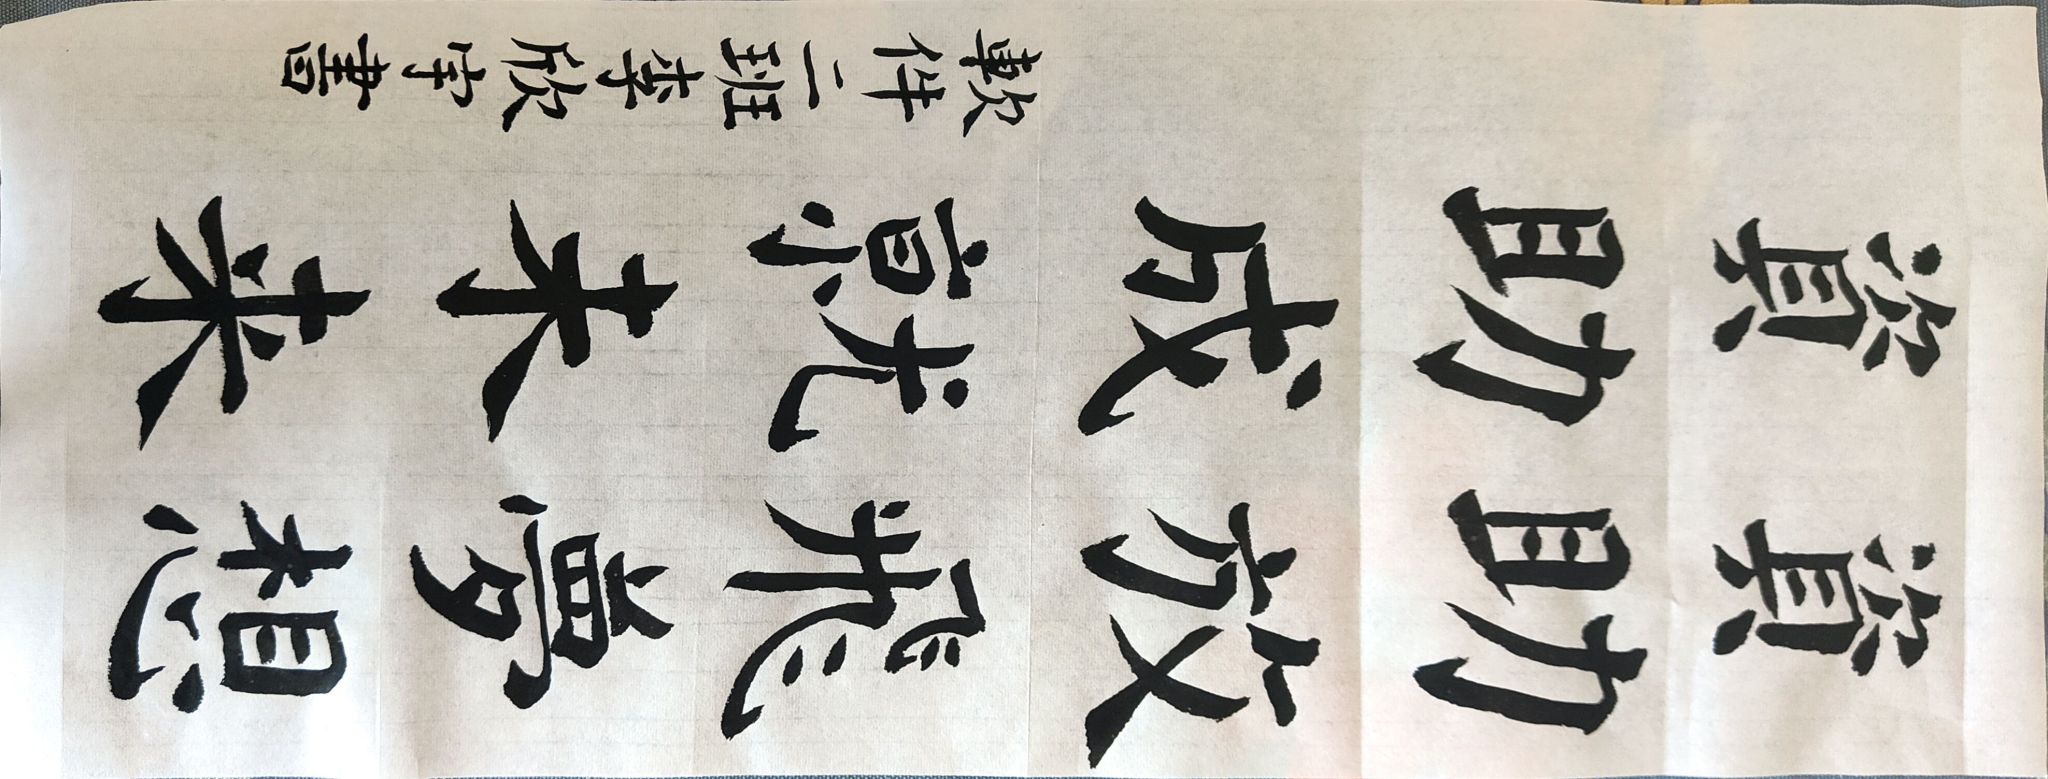 資助放飛夢想
資助成就未來
軟件二班李欣宇書